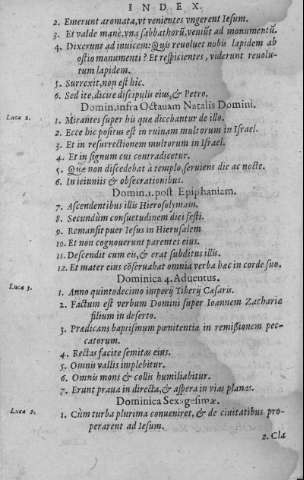 INDEX.
2. Emerunt aromata, vt venientes vngerent Iesum.
3. Et valde mane, vna sabbathorũ, veniũt ad monumentũ.
4. Dixerunt ad inuicem: Quis reuoluet nobis lapidem ab
ostio monumenti? Et respicientes, viderunt reuolu-
tum lapidem.
5. Surrexit, non est hic.
6. Sed ite, dicite discipulis eius, & Petro.
Domin. infra Octauam Natalis Domini.
Luca 2.
1. Mirantes super his quæ dicebantur de illo.
2. Ecce hic positus est in ruinam multorum in Israel.
3. Et in resurrectionem multorum in Israel.
4. Et in signum cui contradicetur.
5. Quæ non discedebat à templo, seruiens die ac nocte.
6. In ieiuniis & obsecrationibus.
Domin. 1. post Epiphaniam.
7. Ascendentibus illis Hierosolymam.
8. Secundùm consuetudinem diei festi.
9. Remansit puer Iesus in Hierusalem
10. Et non cognouerunt parentes eius.
11. Descendit cum eis, & erat subditus illis.
12. Et mater eius cõseruabat omnia verba hæc in corde suo.
Dominica 4. Aduentus.
Luca 3.
1. Anno quintodecimo imperij Tiberij Cæsaris.
2. Factum est verbum Domini super Ioannem Zachariæ
filium in deserto.
3. Prædicans baptismum pœnitentiæ in remissionem pec-
catorum.
4. Rectas facite semitas eius.
5. Omnis vallis implebitur.
6. Omnis mons & collis humiliabitur.
7. Erunt praua in directa, & aspera in vias planas.
Dominica Sexagesimæ.
Luca 8.
1. Cùm turba plurima conueniret, & de ciuitatibus pro-
perarent ad Iesum.
2. Cla